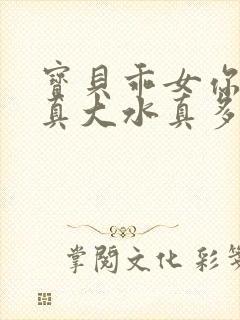 寶貝乖女你
真大水真多
掌閱文化 彩